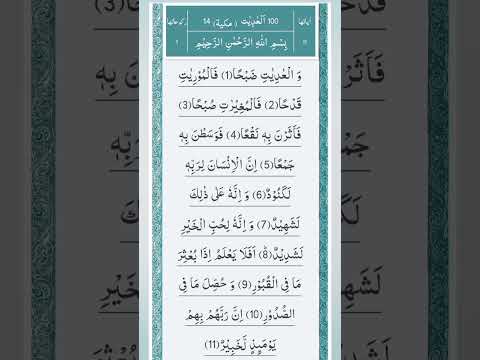 100 اَلْعٰدِيٰت (مَكِّيَة) 14
بِسْمِ اللهِ الرَّحْمٰنِ الرَّحِيْمِ
وَ الْعٰدِيٰتِ ضَبْحًا(1) فَالْمُوْرِيٰتِ
قَدْحًا(2) فَالْمُغِيْرٰتِ صُبْحًا(3)
فَاَثَرْنَ بِهٖ نَقْعًا(4) فَوَسَطْنَ بِهٖ
جَمْعًا(5) اِنَّ الْاِنْسَانَ لِرَبِّهٖ
لَكَنُوْدٌ(6) وَ اِنَّهٗ عَلٰى ذٰلِكَ
لَشَهِيْدٌ(7) وَ اِنَّهٗ لِحُبِّ الْخَيْرِ
لَشَدِيْدٌ(8) اَفَلَا يَعْلَمُ اِذَا بُعْثِرَ
مَا فِى الْقُبُوْرِ(9) وَ حُصِّلَ مَا فِى
الصُّدُوْرِ(10) اِنَّ رَبَّهُمْ بِهِمْ
يَوْمَىٕذٍ لَّخَبِيْرٌ(11)